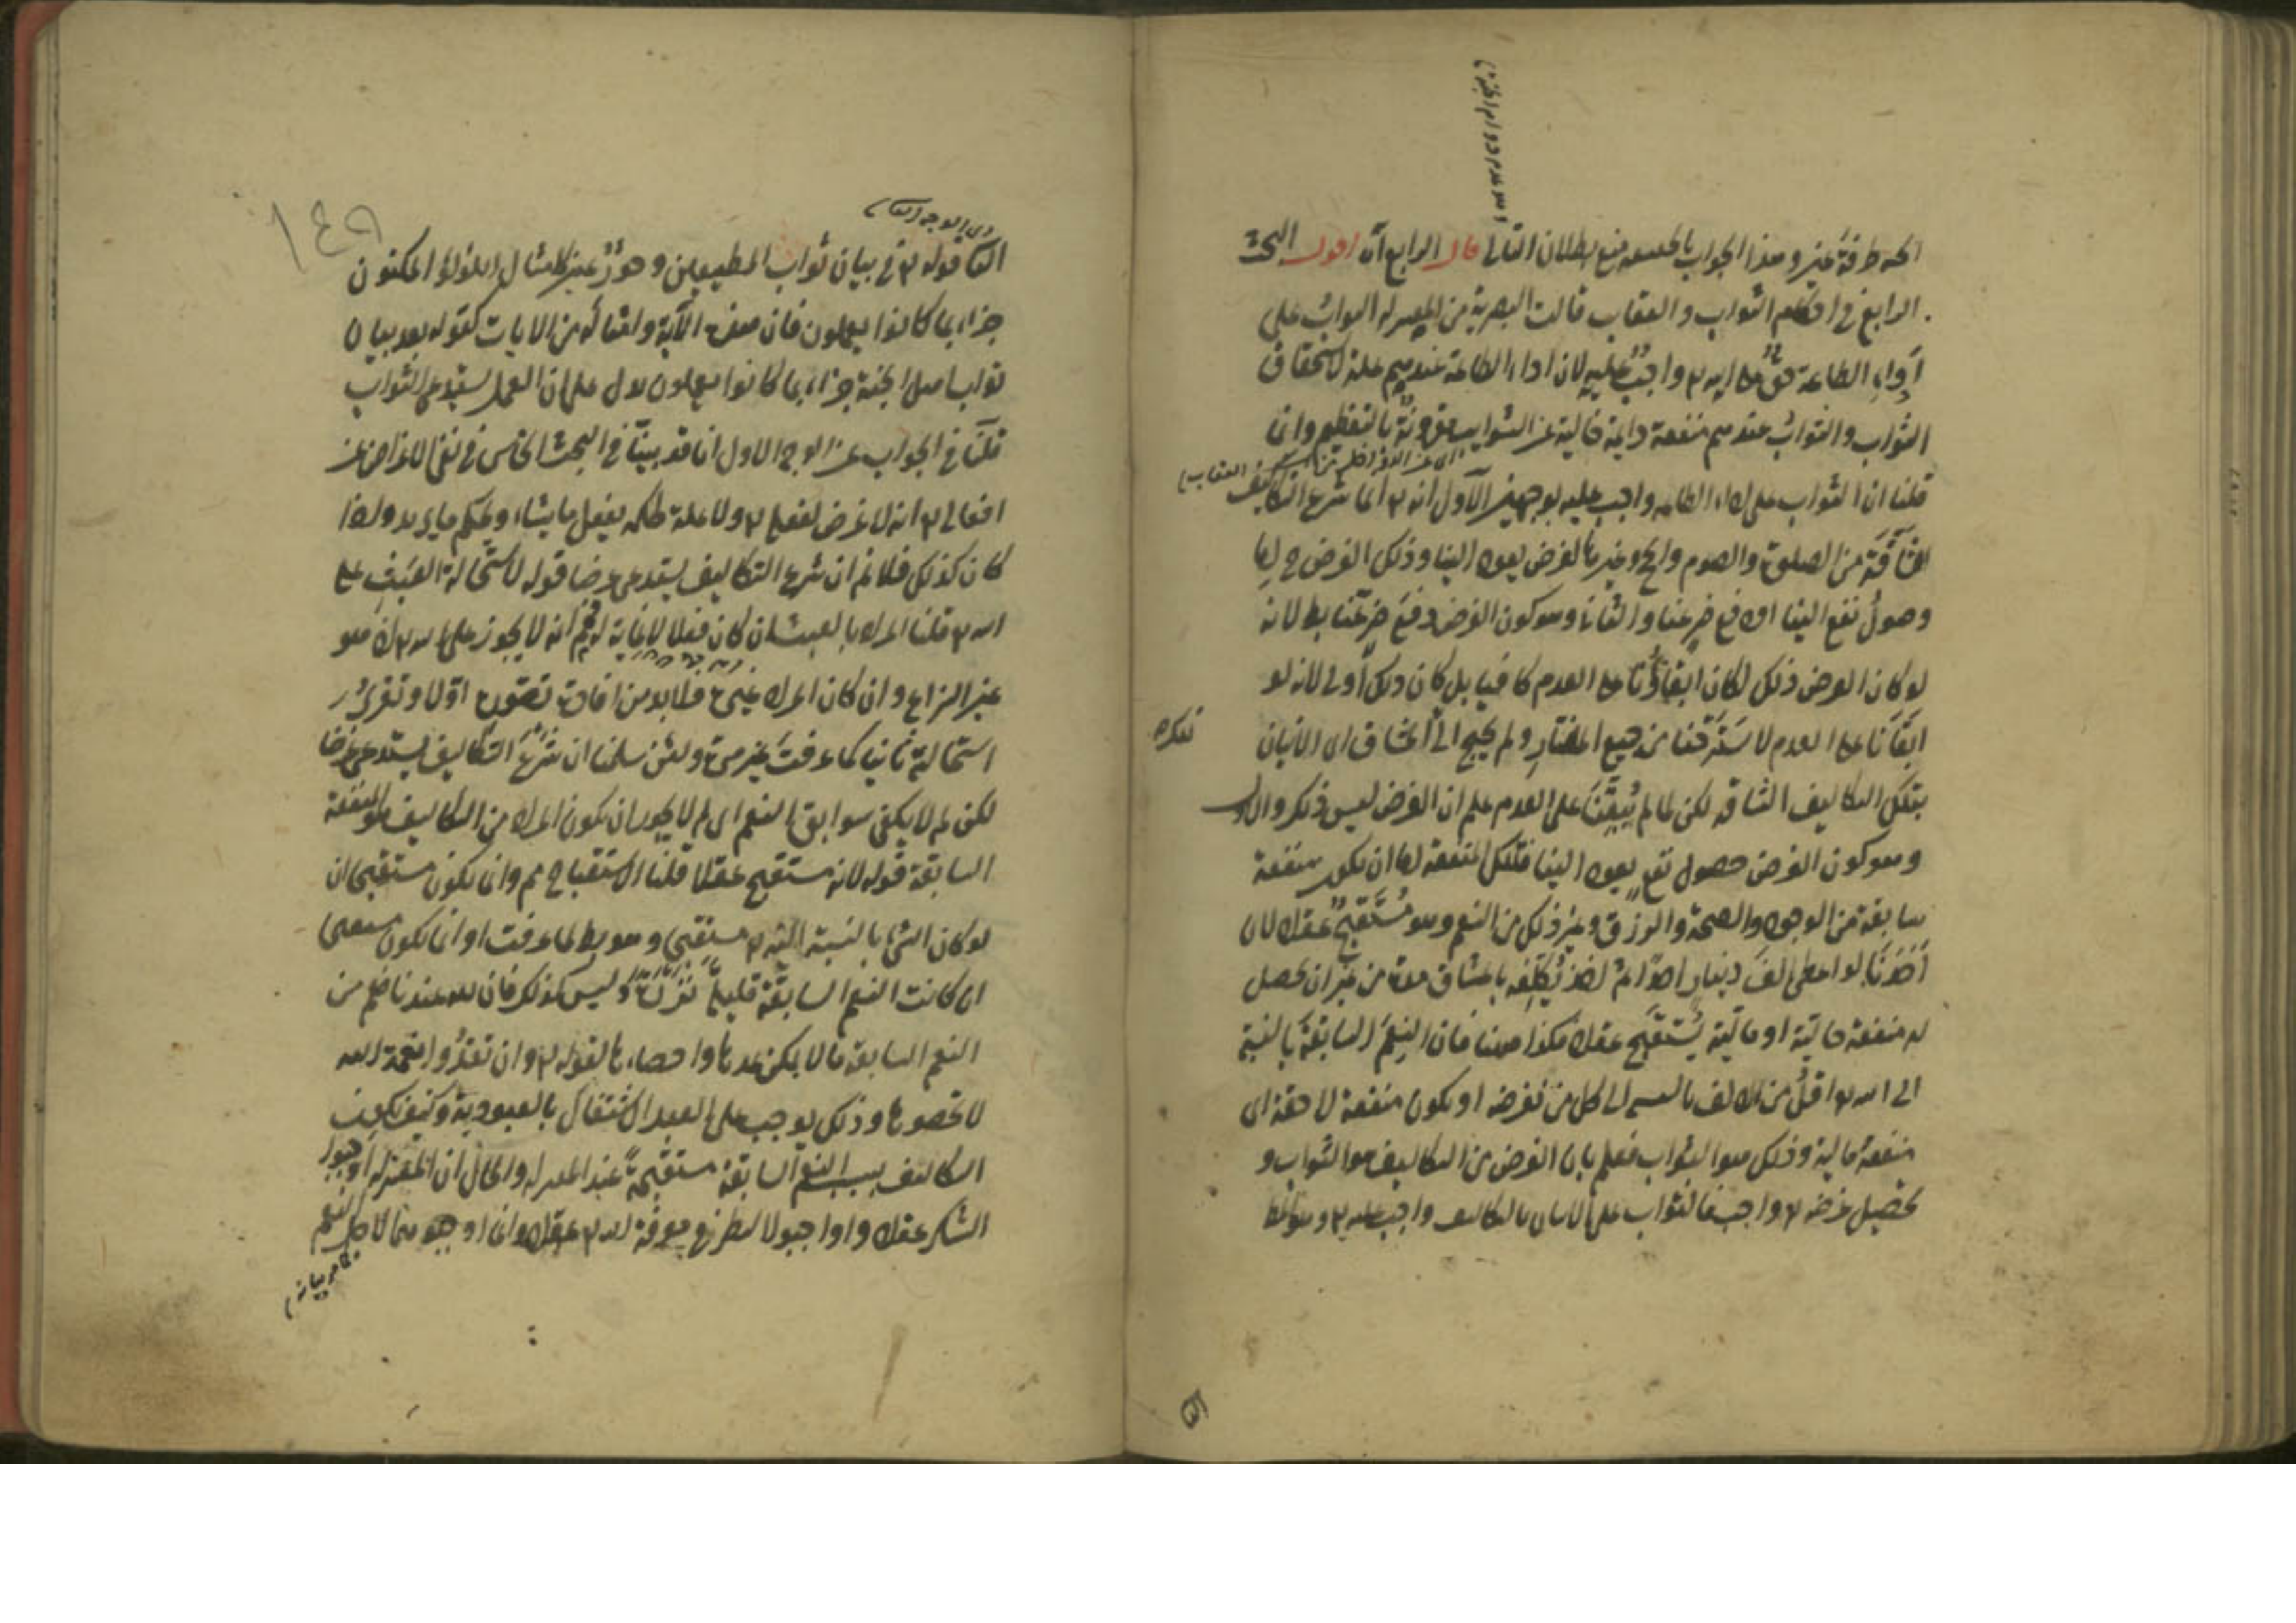 طرفة عين و هذا الجواب بالحقيقة منع بطلان التالى قال الرابع آه اقول البحث
الرابع فى احكام الثواب والعقاب قالت البصرية من المعتزله الثواب على
اداء الطاعة حق على الله تع واجب عليه لان اداء الطاعة عندهم علة لاستحقاق
الثواب والثواب عندهم منفعة دايمة خالية عن الشوايب مقرونة بالتعظيم وانما
قلنا ان الثواب على اداء الطاعه واجب عليه بوجهين الاول انه تع انما شرع التكاليف
الشاقة من الصلوة والصوم والحج وغيرها لغرض يعود الينا وذلك الغرض ح اما
وصول نفع الينا او دفع ضر عنا والثانى وهو كون الغرض دفع ضر عنا بط لانه
لو كان الغرض ذلك لكان ابقاؤنا على العدم كافيا بل كان ذلك اولى لانه لو
ابقانا على العدم لاسترحنا من جميع المضار ولم يحتج الى المشاق اى الاتيان
بتلك التكاليف الشاقه لكن لما لم يبقنا على العدم علم ان الغرض ليس ذلك والاول
وهو كون الغرض حصول نفع يعود الينا فتلك المنفعة اما ان تكون منفعة
سابقة من الوجود والصحة والرزق وغير ذلك من النعم وهو مستقبح عقلا لان
احدنا لو اعطى الف دينار احدا ثم اخذ يكلفه بامشاق مدة من غير ان يحصل
له منفعة حالية او مالية يستقبح عقلا فكذا ههنا فان النعم السابقة بالنسبة
الى الله تع اقل من الالف بالنسبة الى كل من نفرضه او تكون منفعة لاحقة اى
منفعة مالية وذلك هو الثواب فعلم بان الغرض من التكاليف هو الثواب و
تحصيل غرضه تع واجب فالثواب على الاتيان بالتكاليف واجب عليه تع وهو المط
١٤٩
اى الوجه الثانى
الثانى قوله تع فى بيان ثواب المطيعين و حور عين كامثال اللؤلؤ المكنون
جزاء بما كانوا يعملون فان هذه الآية وامثاله من الايات كقوله بعد بيان
ثواب اهل الجنة جزاء بما كانوا يعملون يدل على ان العمل يستدعى الثواب
قلنا فى الجواب عن الوجه الاول انا قد بينا فى البحث الخامس فى نفى الاغراض عن
افعاله تع انه لا غرض لفعله تع ولا علة لحكمه يفعل ما يشاء ويحكم ما يريد واذا
كان كذلك فلا نم ان شرع التكاليف يستدعى غرضا قوله لاستحالة العبث على
الله تع قلنا المراد بالعبث ان كان فعلا لا غاية له فلم انه لا يجوز على الله تع اذ هو
عين النزاع وان كان المراد غيره فلا بد من افادة تصوره اولا وتقرير
استحالته ثانيا كما عرفت غير مرة ولئن سلمنا ان شرع التكاليف يستدعى غرضا
لكن لم لا يكفى سوابق النعم اى لم لا يجوز ان يكون المراد من التكاليف هو المنفعة
السابقة قوله لانه مستقبح عقلا قلنا الاستقباح مم وانما يكون مستقبحا ان
لو كان الشئ بالنسبة اليه تع مستقبح وهو بط لما عرفت او انما يكون مستقبحا
ان كانت النعم السابقة قليلة نزرة وليس كذلك فان لله عندنا فيهم من
النعم السابقة ما لا يمكن عدها واحصاءها لقوله تع وان تعدوا نعمة الله
لا تحصوها وذلك يوجب على العبد الاشتغال بالعبودية وكيف تكون
التكاليف بسبب النعم السابقة مستقبحة عند المعتزله والحال ان المعتزله اوجبوا
الشكر عقلا واوجبوا النظر فى معرفة الله تع عقلا وانما اوجبوهما لاجل النعم
كما مر بيانه